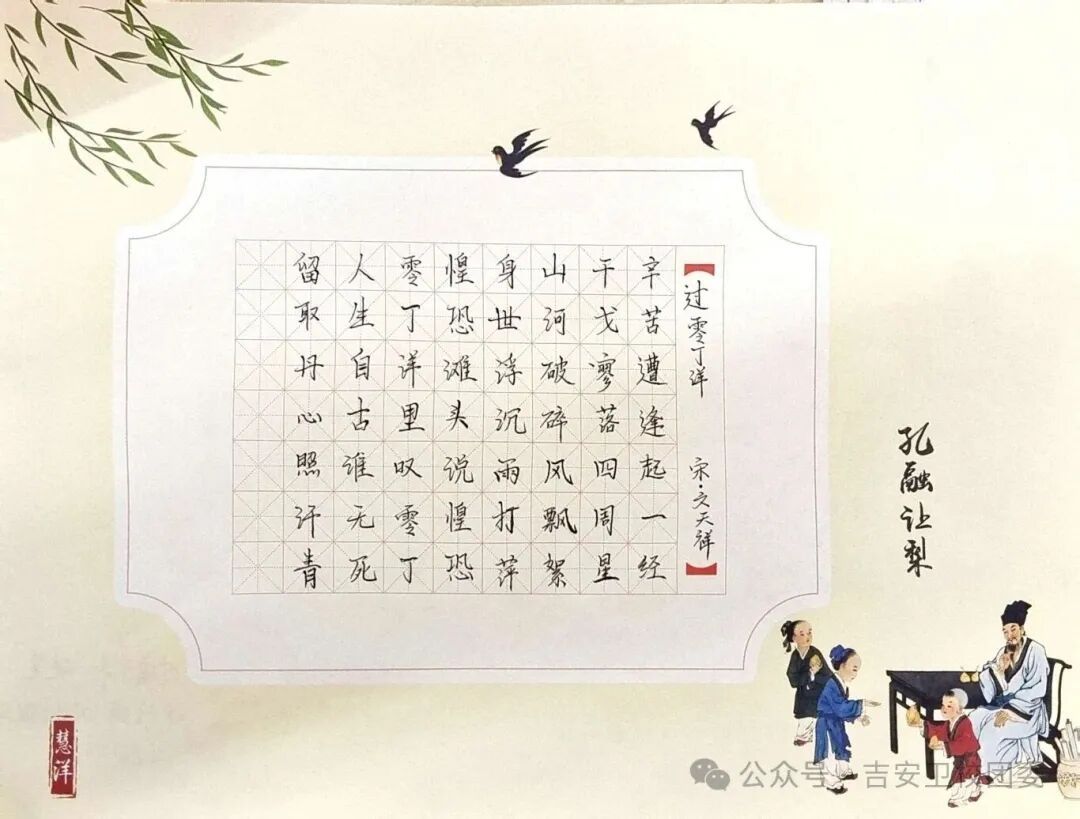 【过零丁洋 宋·文天祥】
辛苦遭逢起一经
干戈寥落四周星
山河破碎风飘絮
身世浮沉雨打萍
惶恐滩头说惶恐
零丁洋里叹零丁
人生自古谁无死
留取丹心照汗青
孔融让梨
慧洋
公众号·吉安卫校团委